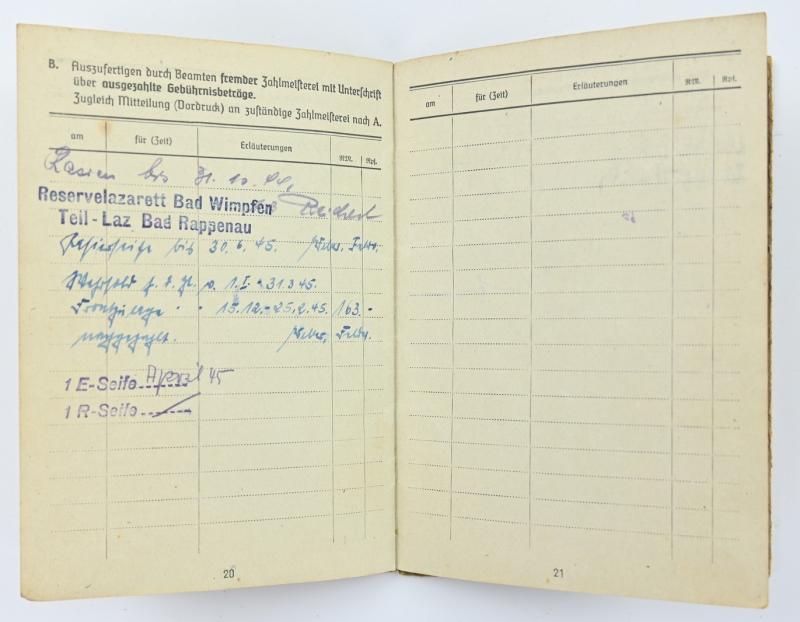 B. Auszufertigen durch Beamten fremder Zahlmeisterei mit Unterschrift
über ausgezahlte Gebührnisbeträge.
Zugleich Mitteilung (Vordruck) an zuständige Zahlmeisterei nach A.
am für (Zeit) Erläuterungen RM. Rpf.
bis 31.10.44.
Reservelazarett Bad Wimpfen
Teil-Laz Bad Rappenau
Rasierseife bis 30.6.45.
Wehrsold f. d. Zt. v. 1.I. - 31.3.45.
Frontzulage " " 15.12.-25.2.45. 163.-
nachgezahlt.
1 E-Seife April 45
1 R-Seife
20
am für (Zeit) Erläuterungen RM. Rpf.
21